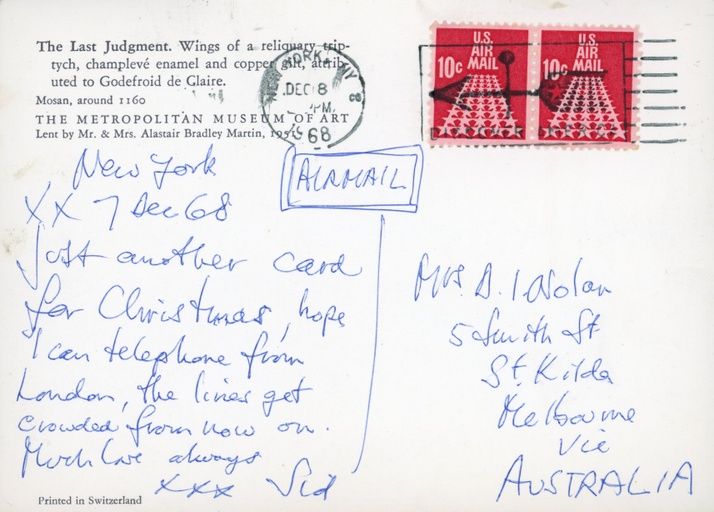 The Last Judgment. Wings of a reliquary trip-
tych, champlevé enamel and copper gilt, attrib-
uted to Godefroid de Claire.
Mosan, around 1160
THE METROPOLITAN MUSEUM OF ART
Lent by Mr. & Mrs. Alastair Bradley Martin, 1951
NEW YORK, NY
DEC 8
PM
1968
U.S. AIR MAIL 10c
U.S. AIR MAIL 10c
AIRMAIL
New York
XX 7 Dec 68
Just another card
for Christmas, hope
I can telephone from
London, the lines get
crowded from now on.
Much love always
xxx Sid
Mrs. D. Nolan
5 Smith St
St. Kilda
Melbourne
Vic
AUSTRALIA
Printed in Switzerland